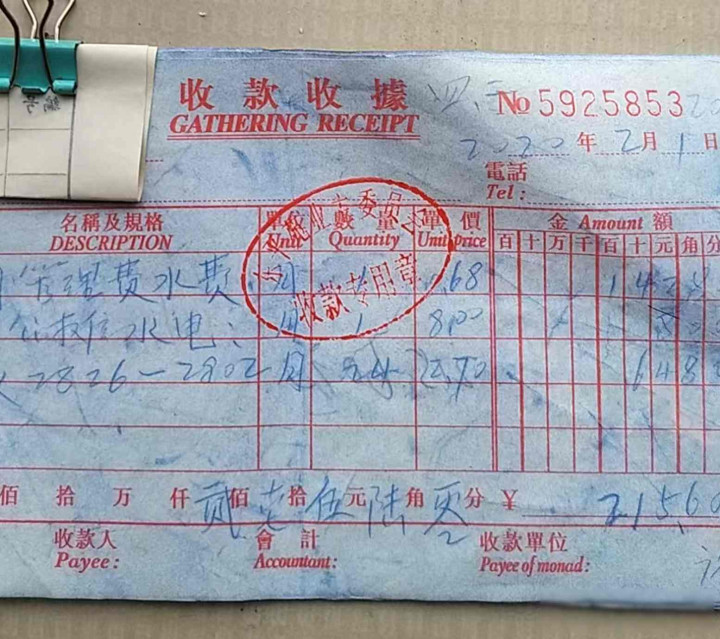 收款收據
GATHERING RECEIPT
No 5925853
2020年2月1日
電話
Tel:
名稱及規格 單位 數量 單價 金 Amount 額
DESCRIPTION Unit Quantity Unit price 百十万千百十元角分
业主委员会
收款专用章
管理费水费 月 .68
水电: 月 1 8.00
2826-2802 月 24 2.70 648
佰拾万仟贰佰壹拾伍元陆角零分 ¥ 215.60
收款人 會計 收款單位
Payee: Accountant: Payee of monad: